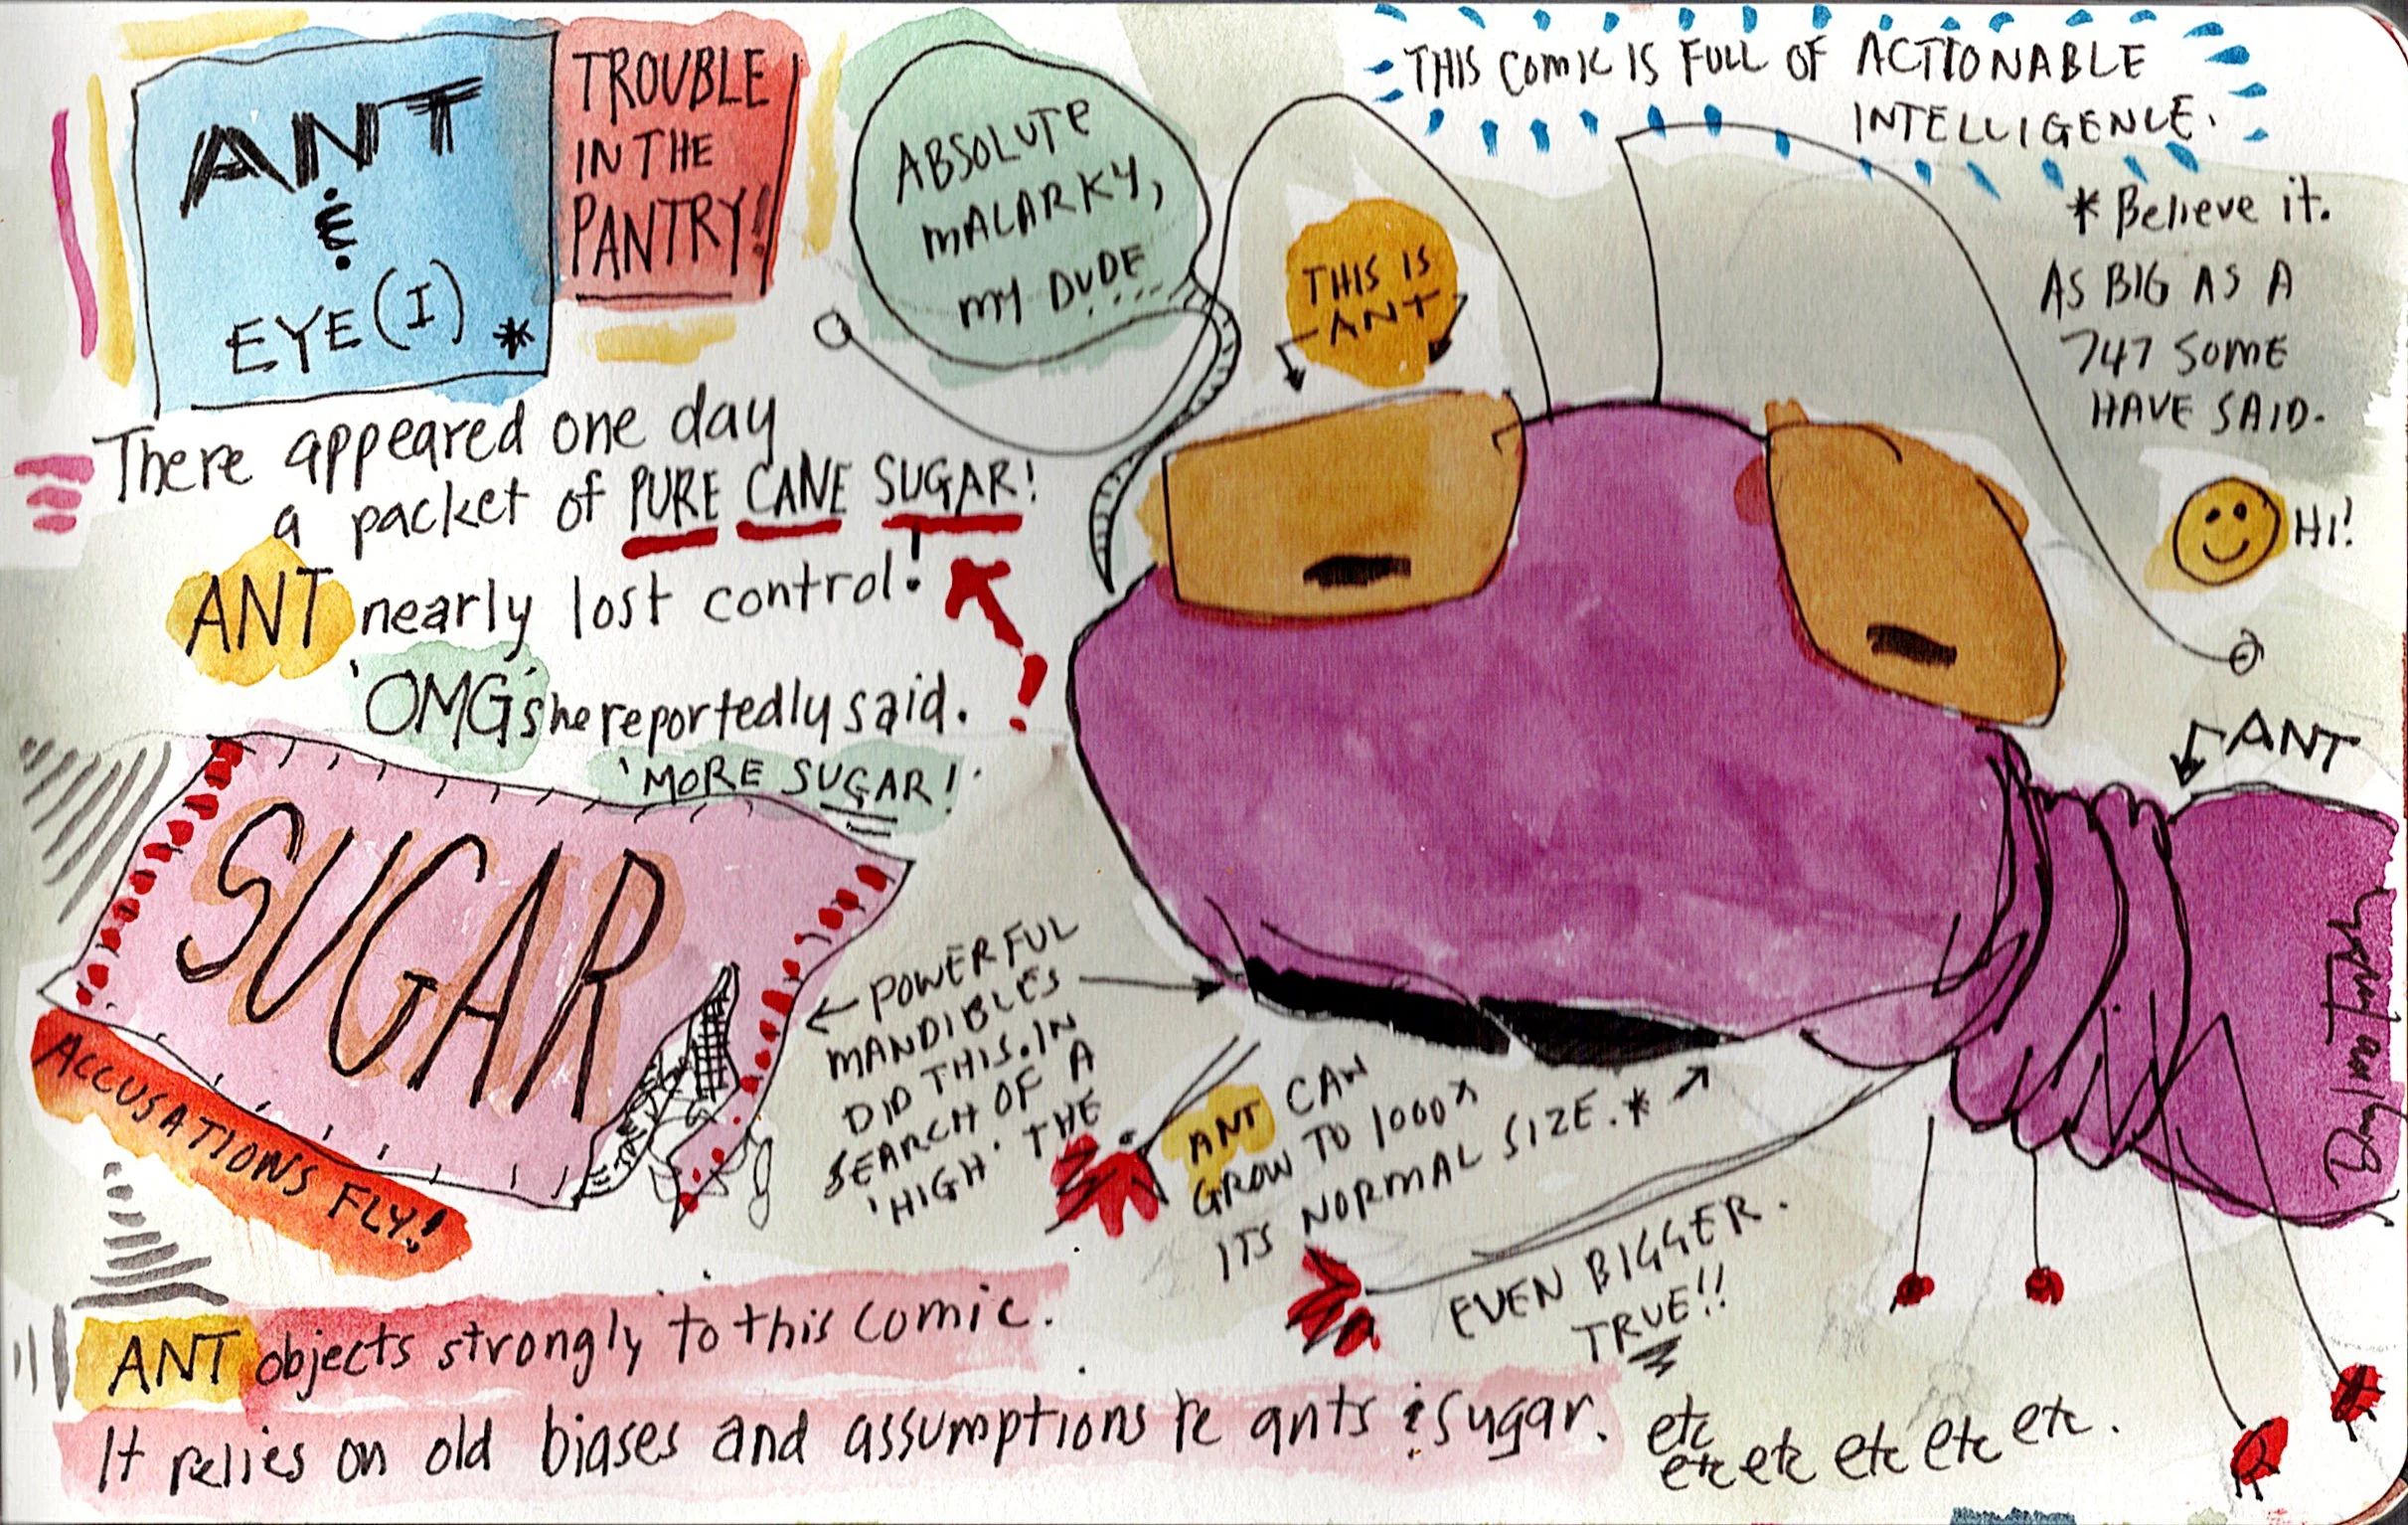 ANT
&
EYE(I) *
TROUBLE
IN THE
PANTRY!
ABSOLUTE
MALARKY,
MY DUDE...
THIS COMIC IS FULL OF ACTIONABLE
INTELLIGENCE.
THIS IS
ANT
* Believe it.
AS BIG AS A
747 SOME
HAVE SAID.
HI!
There appeared one day
a packet of PURE CANE SUGAR!
ANT nearly lost control!
'OMG' she reportedly said.
'MORE SUGAR!'
!
ANT
SUGAR
ACCUSATIONS FLY!
POWERFUL
MANDIBLES
DID THIS. IN
SEARCH OF A
'HIGH' THE
ANT CAN
GROW TO 1000x
ITS NORMAL SIZE.*
EVEN BIGGER.
TRUE!!
ANT objects strongly to this comic.
It relies on old biases and assumptions re ants & sugar. etc
etc etc etc etc etc.